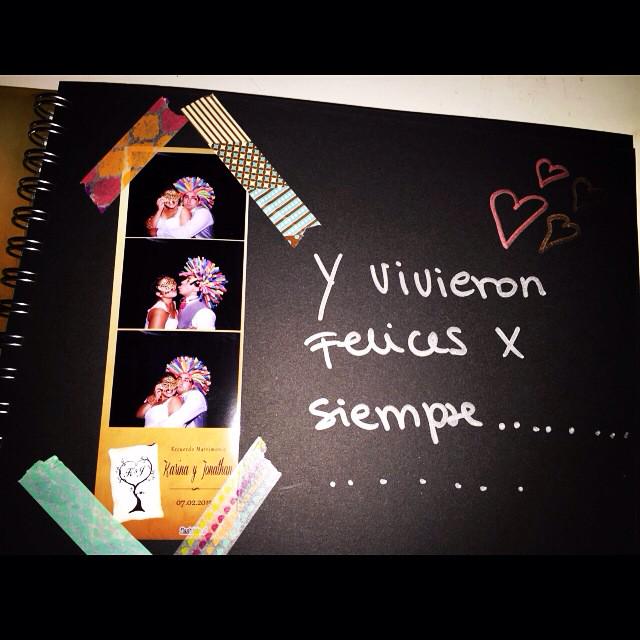 Y vivieron
Felices x
siempre...........
.......
Recuerdo Matrimonio
Karina y Jonathan
07.02.201